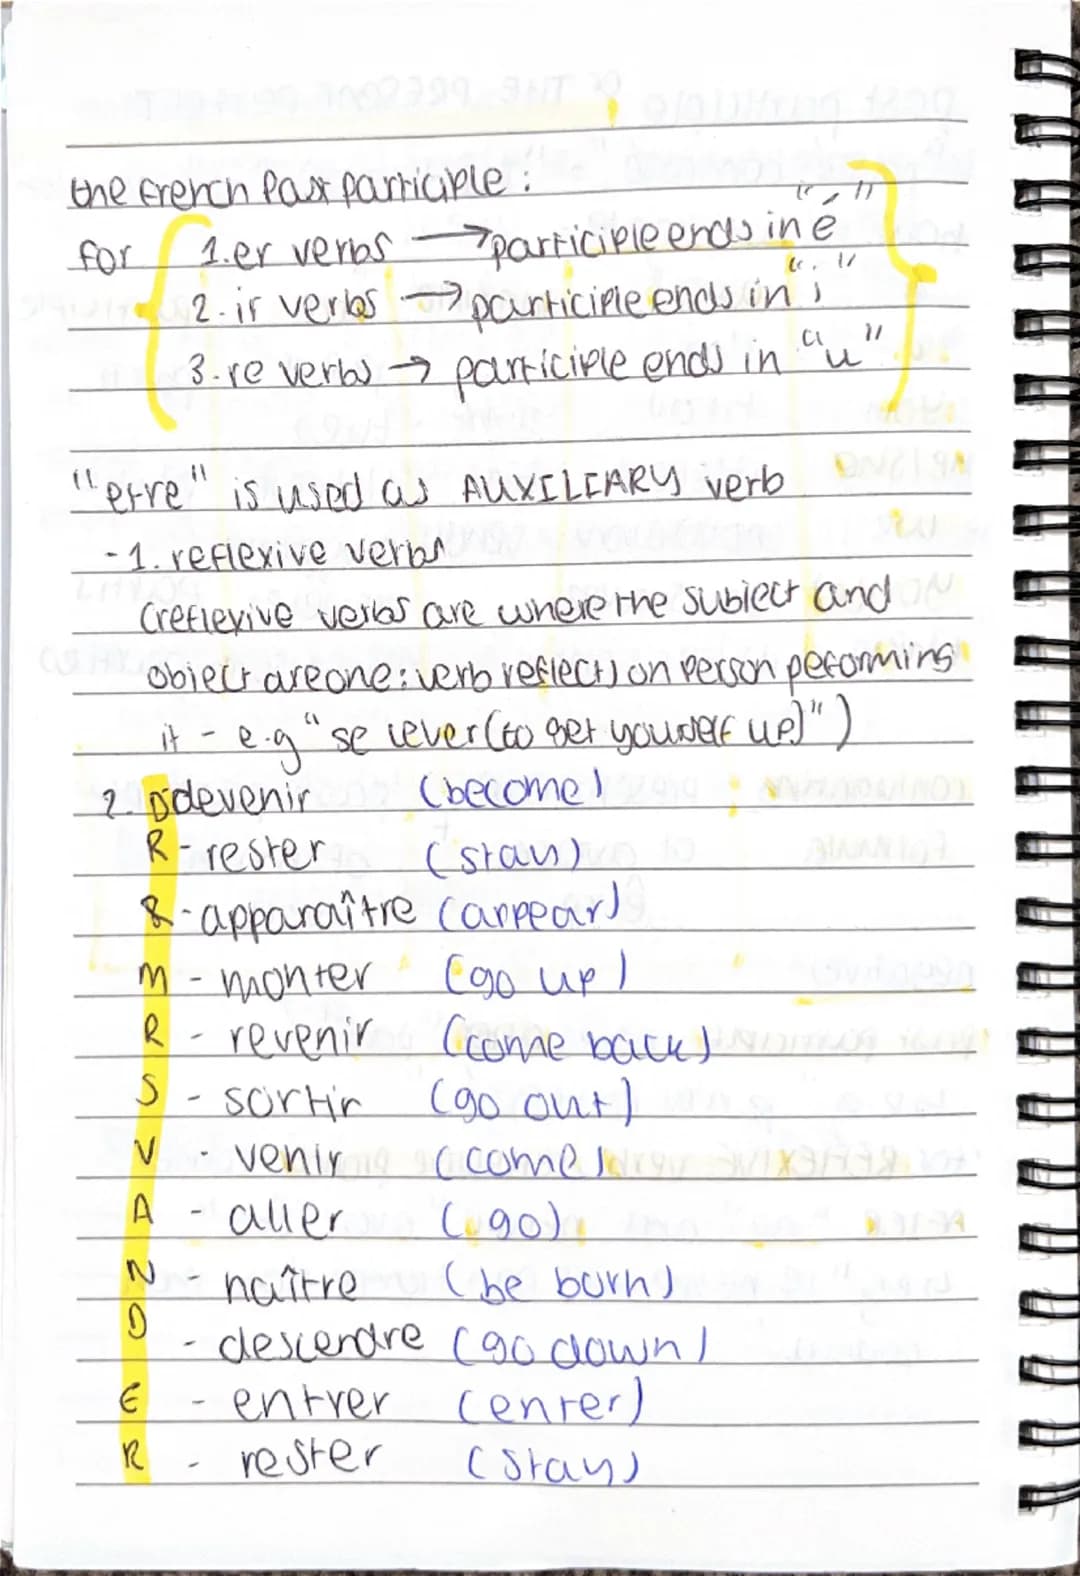 the French Past participle :
for 1. er verbs → participle ends in "é"
2. ir verbs → participle ends in "i"
3. re verbs → participle ends in "u"
"etre" is used as AUXILIARY verb
- 1. reflexive verbs
(reflexive verbs are where the subject and
object are one: verb reflects on person peforming
it - e.g "se lever (to get yourself up)")
2. D devenir (become)
R - rester (stay)
& - apparaître (appear)
M - monter (go up)
R - revenir (come back)
S - sortir (go out)
V - venir (come)
A - aller (go)
N - naître (be born)
D - descendre (go down)
E - entrer (enter)
R - rester (stay)